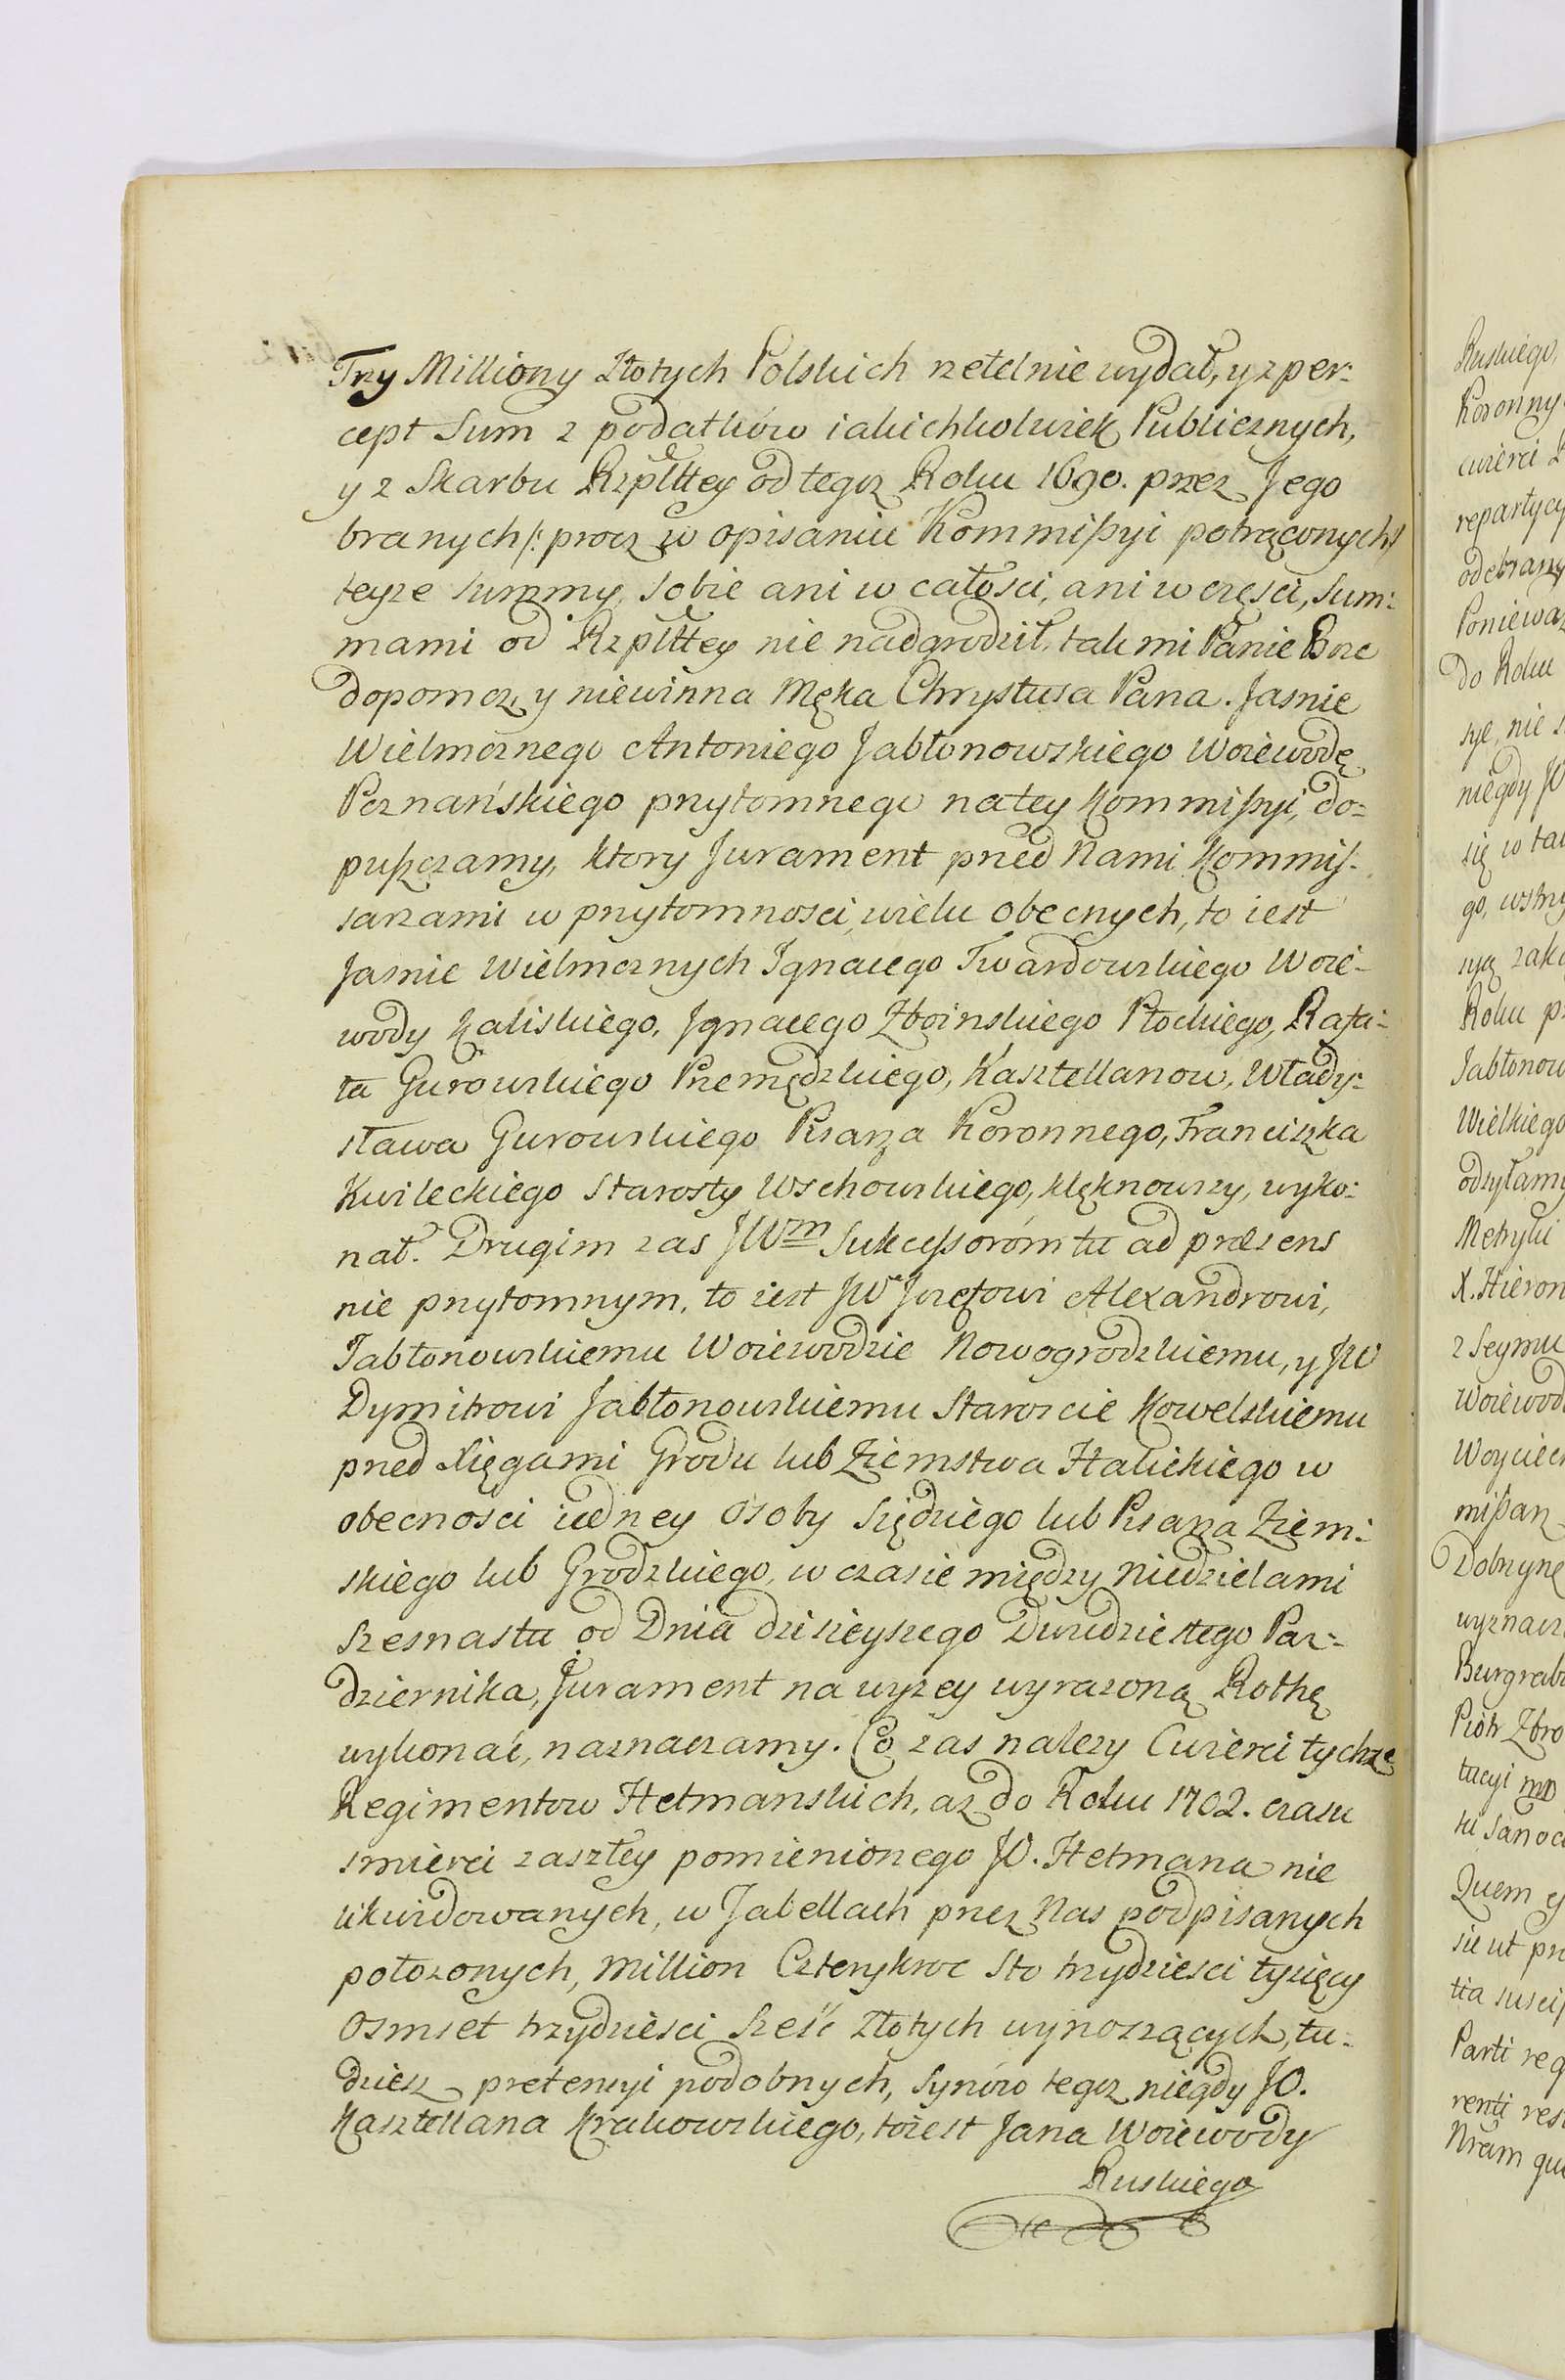 Trzy Milliony Złotych Polskich rzetelnie wydał, y z per:
cept Sum z podatków iakichkolwiek Publicznych,
y z Skarbu Rzplttey od tegoz Roku 1690. przez Jego
branych /: procz w opisaniu Kommißyi potrąconych /
teyze summy, sobie ani w całosci, ani w częsci, Sum:
mami od Rzplttey nie nadgrodził, tak mi Panie Boze
dopomoz, y niewinna Męka Chrystusa Pana. Jasnie
Wielmoznego Antoniego Jabłonowskiego Woiewodę
Poznańskiego przytomnego na tey Kommißyi, do:
pußczamy, ktory Jurament przed Nami Kommis:
sarzami w przytomnosci, wielu obecnych, to iest
Jasnie Wielmoznych Ignacego Twardowskiego Woie-
wody Kaliskiego, Ignacego Zboinskiego Płockiego, Rafa:
ła Gurowskiego Przemędzkiego, Kasztellanow, Włady:
sława Gurowskiego Pisarza Koronnego, Franciszka
Kwileckiego Starosty Wschowskiego, klęknowszy, wyko:
nał. Drugim zas JWm Sukceßoróm tu ad præsens
nie przytomnym, to iest JW Jozefowi Alexandrowi,
Jabłonowskiemu Woiewodzie Nowogrodzkiemu, y JW
Dymitrowi Jabłonowskiemu Staroscie Kowelskiemu
przed Xięgami Grodu lub Ziemstwa Halickiego w
obecnosci iedney Osoby Sędziego lub Pisarza Ziem:
skiego lub Grodzkiego, w czasie między Niedzielami
szesnastu od Dnia dzisieyszego Dwudziestego Paz:
dziernika, Jurament na wyzey wyrazoną Rothę
wykonać, naznaczamy. Co zas nalezy Cwierci tychze
Regimentow Hetmanskich, az do Roku 1702. czasu
smierci zaszłey pomienionego JO. Hetmana nie
likwidowanych, w Tabellach przez Nas podpisanych
połozonych, Million Czterykroc Sto trzydziesci tysięcy
Osmset trzydziesci Szesć Złotych wynoszących, tu:
dziesz pretensyi podobnych, Synów tegoz niegdy JO.
Kasztellana Krakowskiego, to iest Jana Woiewody
Ruskiego
Ruskiego,
Koronny
cwierci
repartycy
odebrany
Poniewaz
do Roku
sye, nie
niegdy JO
się w ta
go, wstrzy
syą zak
Roku p
Jabłonow
Wielkiego
odsyłamy
Metryki
X. Hieron
z Seymu
Woiewod
Woyciech
mißarz
Dobrzyne
wyznacz
Burgrabi
Piotr Zbro
tucyi
ki Sanoc
Quem
sie ut pr
tia suscip
Parti req
renti res
Nram qu